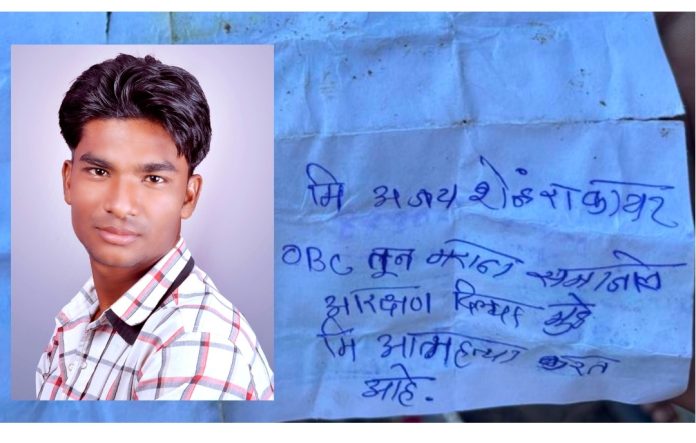 मि अजय शेंडराकावर
OBC तून मराठा समाजाचे
आरक्षण दिल्या मुळे
मि आत्महत्या करत
आहे.